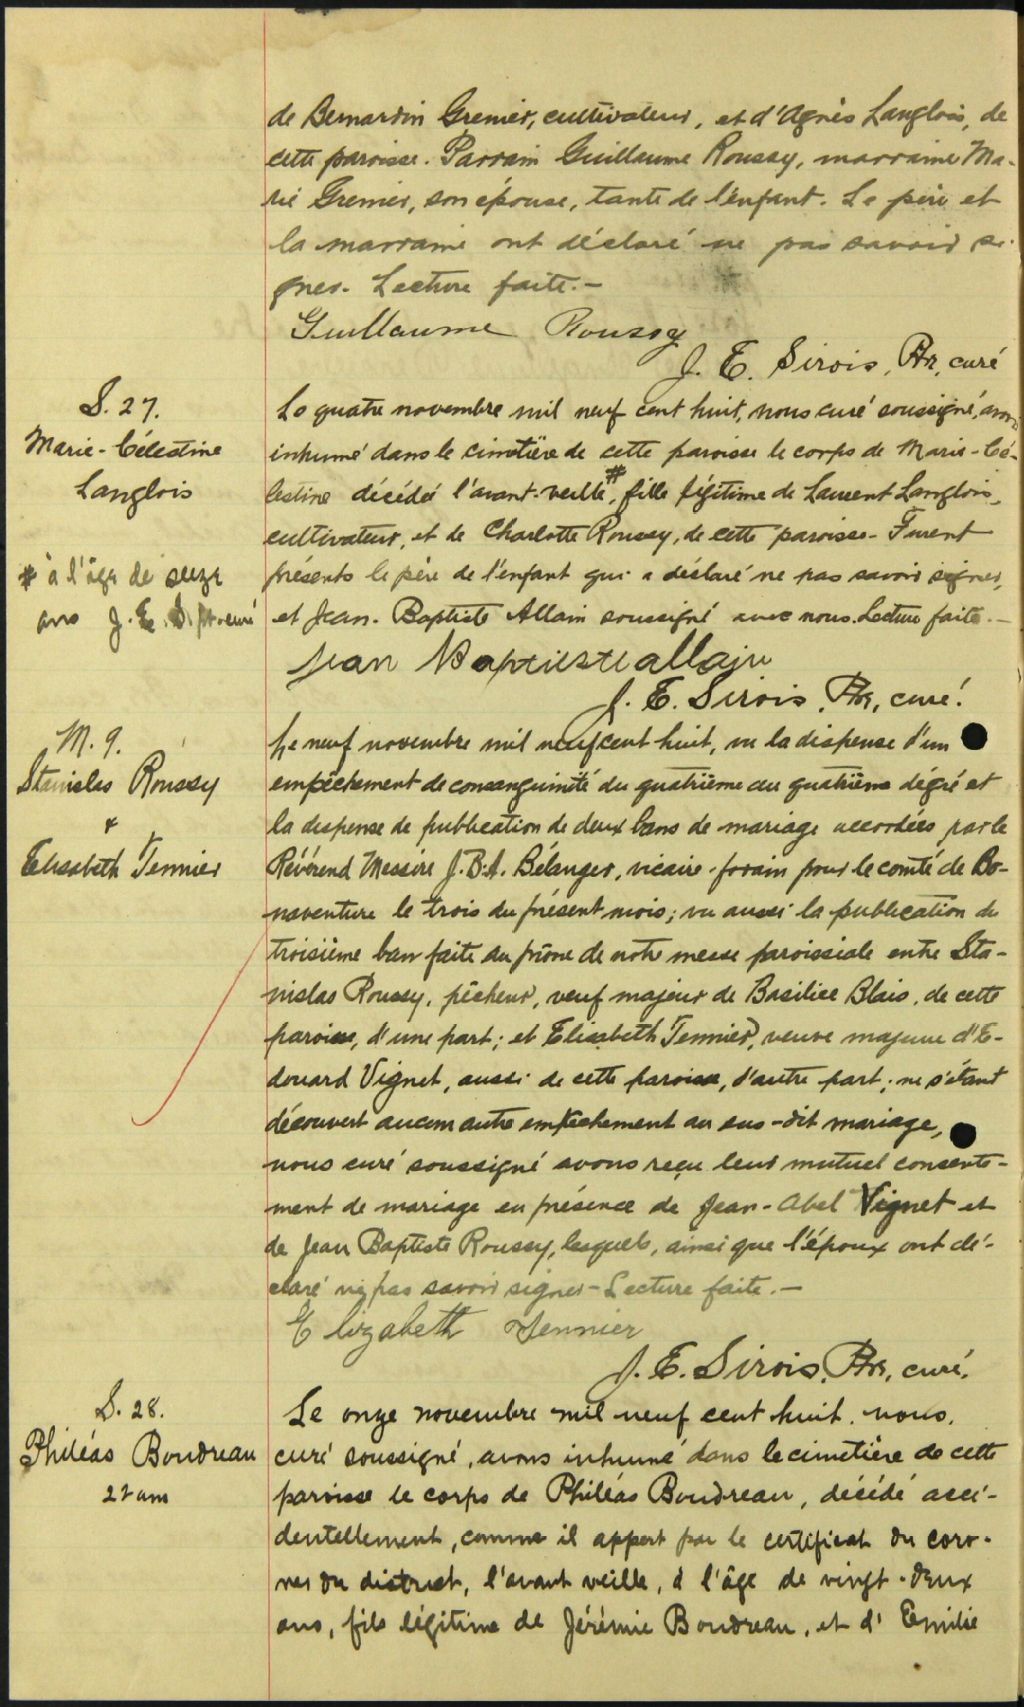 de Bernardin Grenier, cultivateur, et d'Agnès Langlois, de
cette paroisse. Parrain Guillaume Roussy, marraine Ma-
rie Grenier, son épouse, tante de l'enfant. Le père et
la marraine ont déclaré ne pas savoir si-
gner. Lecture faite.—
Guillaume Roussy
J. E. Sirois, Ptr, curé
S. 27.
Marie-Célestine
Langlois
# à l'âge de seize
ans J. E. S. ptr curé
Le quatre novembre mil neuf cent huit, nous curé soussigné, avons
inhumé dans le cimetière de cette paroisse le corps de Marie-Cé-
lestine décédée l'avant-veille #, fille légitime de Laurent Langlois,
cultivateur, et de Charlotte Roussy, de cette paroisse. Furent
présents le père de l'enfant qui a déclaré ne pas savoir signer,
et Jean-Baptiste Allain soussigné avec nous. Lecture faite.—
Jean Baptiste allain
J. E. Sirois, Ptr, curé.
M. 9.
Stanislas Roussy
&
Elisabeth Tennier
Le neuf novembre mil neuf cent huit, vu la dispense d'un
empêchement de consanguinité du quatrième au quatrième dégré et
la dispense de publication de deux bans de mariage accordées par le
Révérend Messire J.B.A. Bélanger, vicaire-forain pour le comté de Bo-
naventure le trois du présent mois; vu aussi la publication du
troisième ban faite au prône de notre messe paroissiale entre Sta-
nislas Roussy, pêcheur, veuf majeur de Basilice Blais, de cette
paroisse, d'une part; et Elisabeth Tennier, veuve majeure d'E-
douard Vignet, aussi de cette paroisse, d'autre part; ne s'étant
découvert aucun autre empêchement au sus-dit mariage,
nous curé soussigné avons reçu leur mutuel consente-
ment de mariage en présence de Jean-Abel Vignet et
de Jean Baptiste Roussy, lesquels, ainsi que l'époux ont dé-
claré ne pas savoir signer. Lecture faite.—
Elizabeth Tennier
J. E. Sirois, Ptr, curé.
S. 28.
Philéas Boudreau
22 ans
Le onze novembre mil neuf cent huit, nous,
curé soussigné, avons inhumé dans le cimetière de cette
paroisse le corps de Philéas Boudreau, décédé acci-
dentellement, comme il appert par le certificat du coro-
ner du district, l'avant veille, à l'âge de vingt-deux
ans, fils légitime de Jérémie Boudreau, et d'Emilie